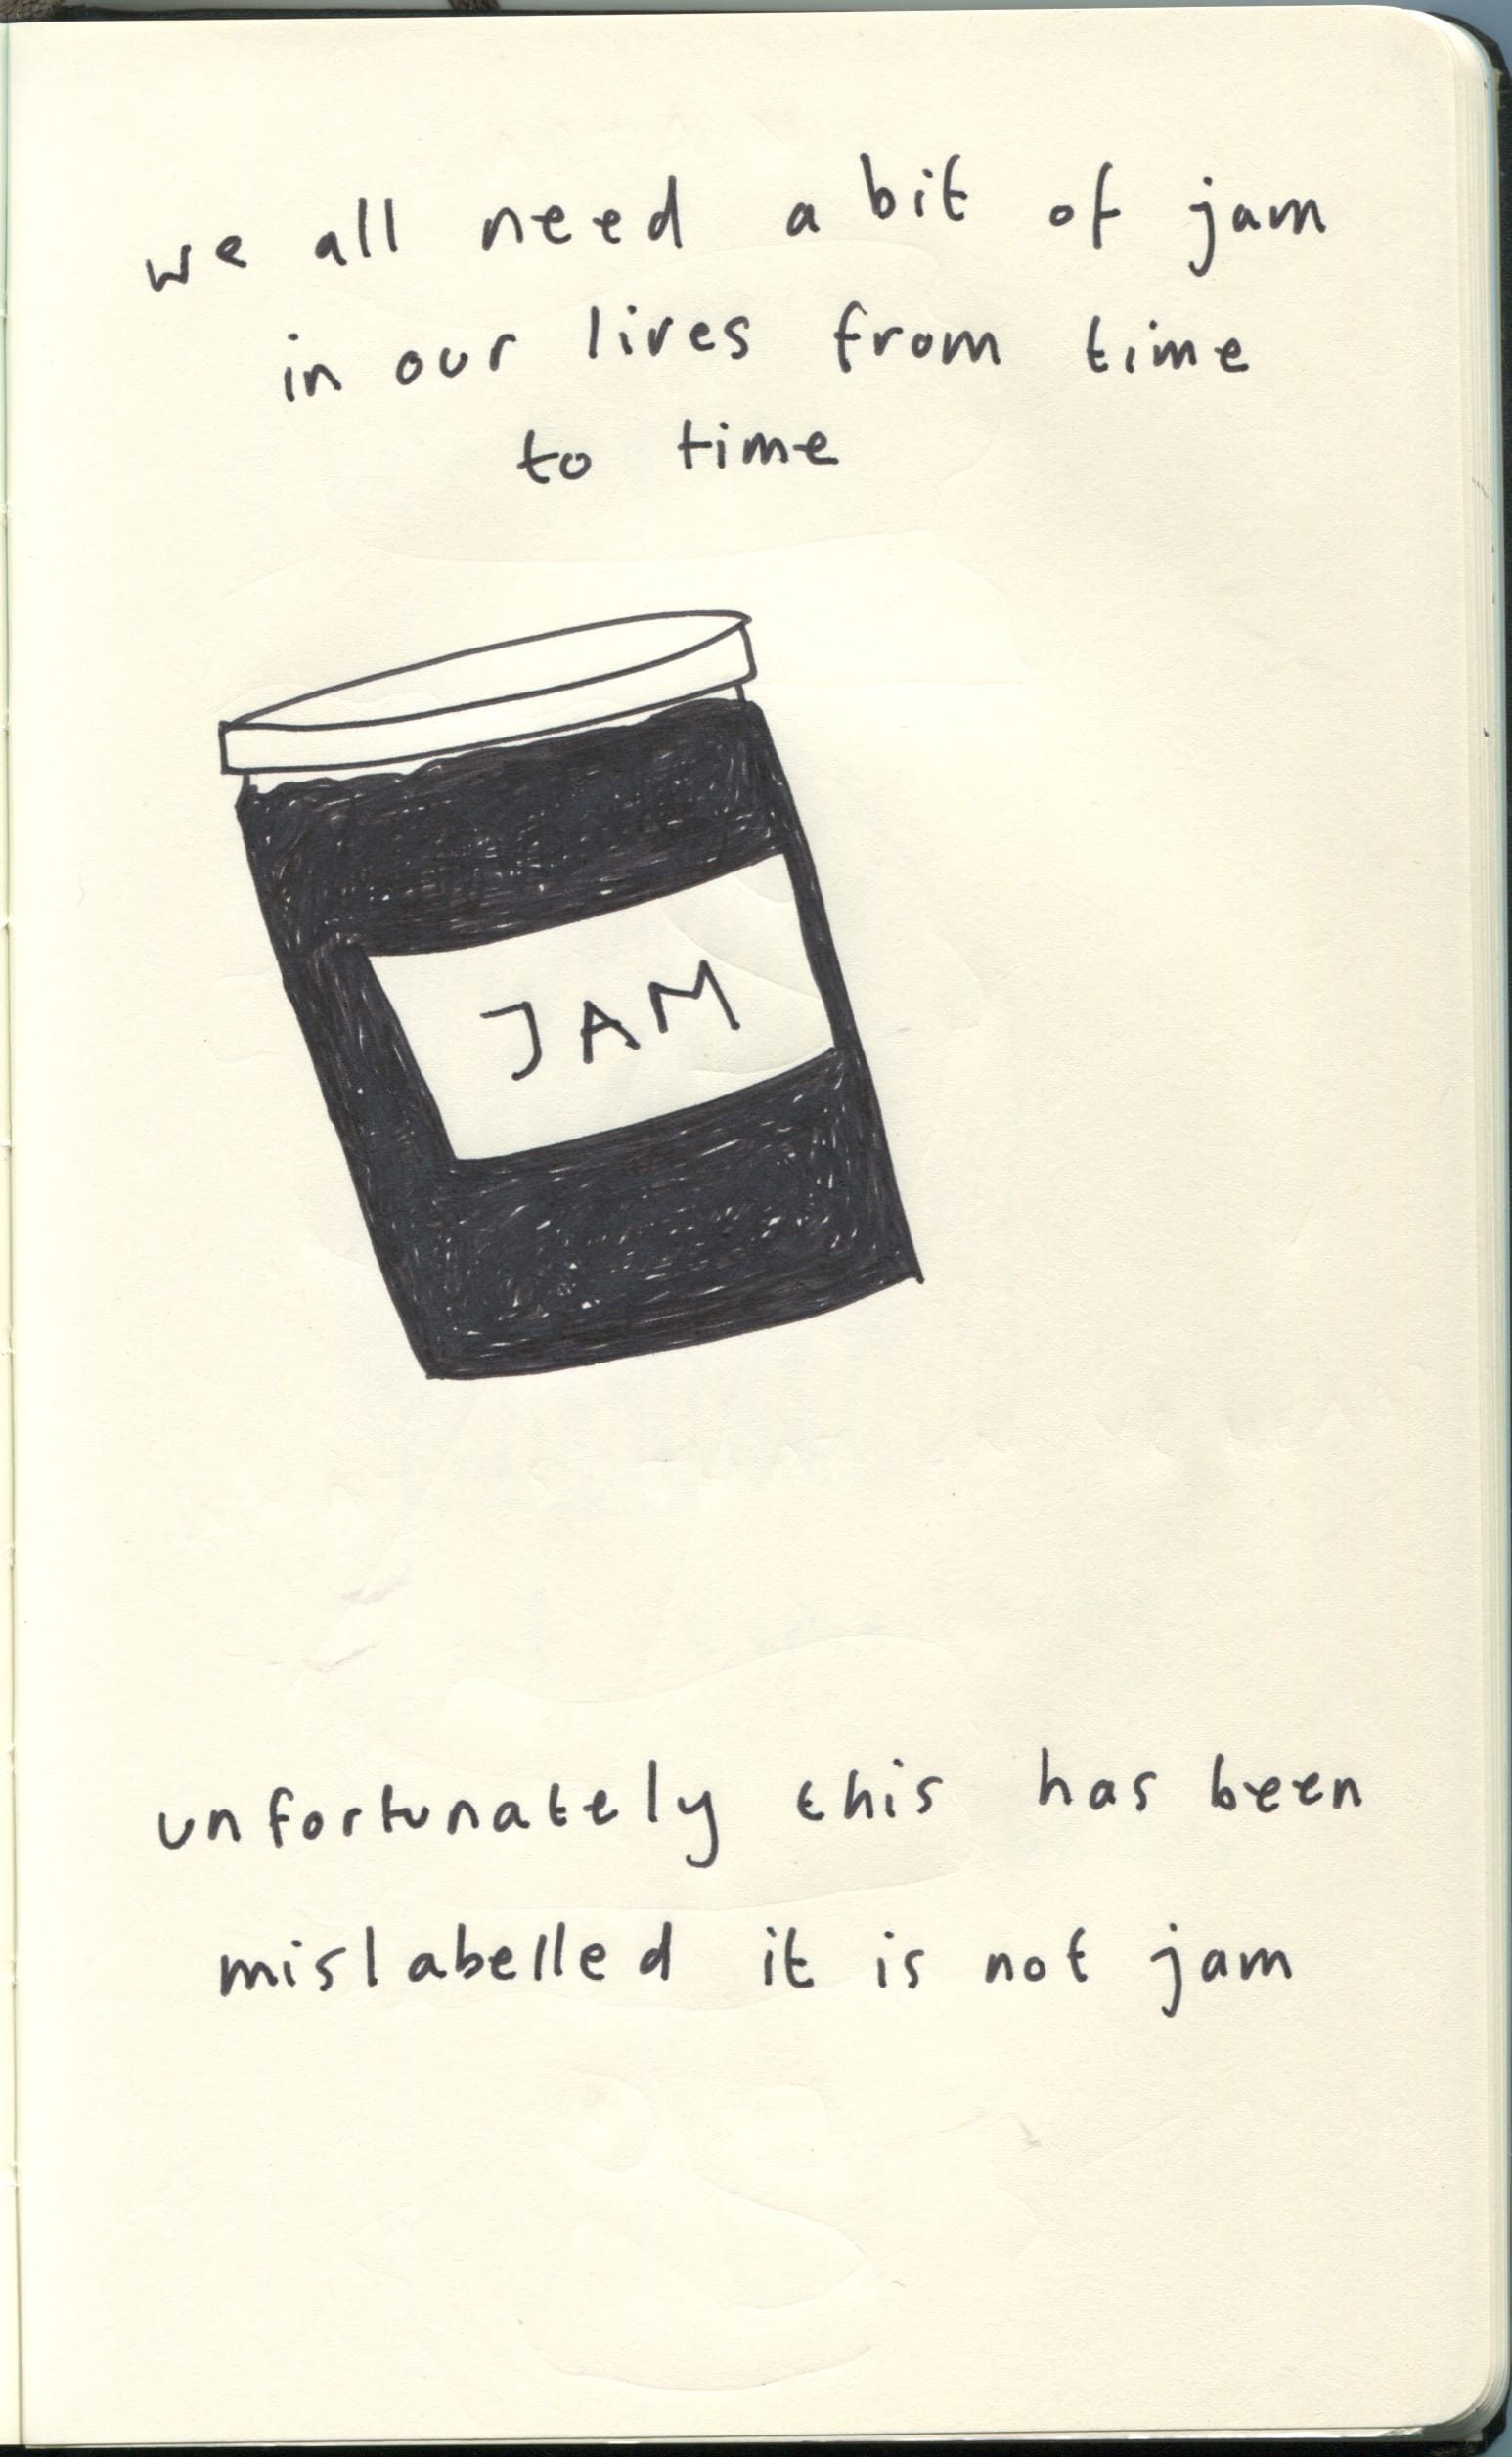 we all need a bit of jam
in our lives from time
to time
JAM
unfortunately this has been
mislabelled it is not jam